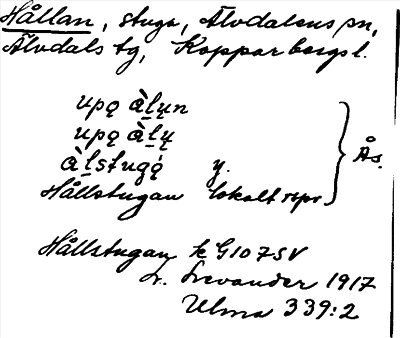 Hållan, stuga, Älvdalens sn,
Älvdals tg, Kopparbergs l.
upǫ àl̠ųn
upǫ àl̠ų
àl̠stugǫ́ y.
Hållstugan lokalt repr.
Ås.
Hållstugan k G107SV
L. Levander 1917
Ulma 339:2